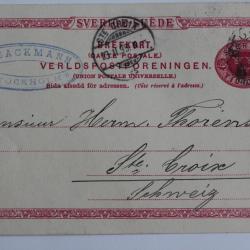 SVERIGE SUÈDE
BREFKORT.
(CARTE POSTALE)
VERLDSPOSTFÖRENINGEN.
(UNION POSTALE UNIVERSELLE.)
Sida afsedd för adressen. (Côté réservé à l'adresse.)
BACKMAN
STOCKHOLM
Monsieur Herm. Thorens
Ste Croix
Schweiz